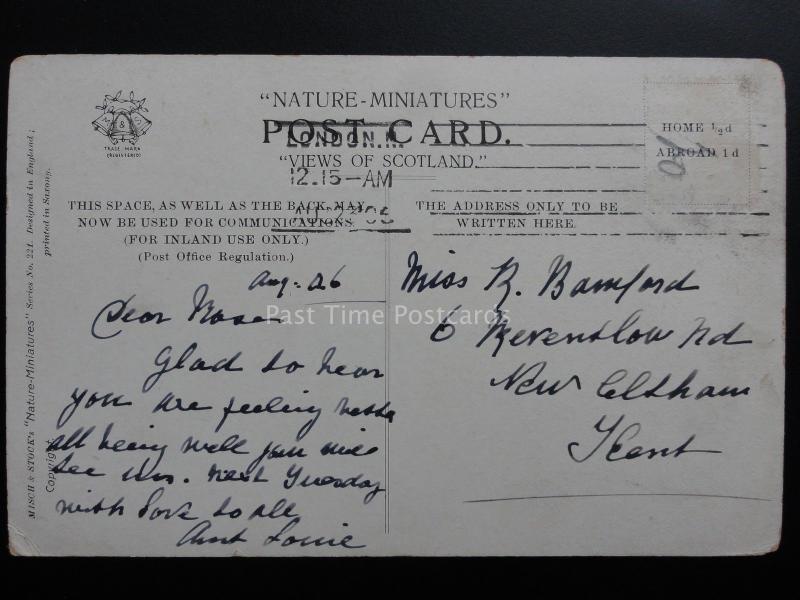 "NATURE-MINIATURES"
POST CARD.
"VIEWS OF SCOTLAND."
M & S
TRADE MARK
(REGISTERED)
LONDON.
12.15-AM
HOME ½d
ABROAD 1d
THIS SPACE, AS WELL AS THE BACK, MAY
NOW BE USED FOR COMMUNICATIONS
(FOR INLAND USE ONLY.)
(Post Office Regulation.)
THE ADDRESS ONLY TO BE
WRITTEN HERE.
Aug. 26
Dear Rose
Glad to hear
you are feeling better
all being well you will
see us. next Tuesday
with love to all
Aunt Louie
Miss R. Bamford
6 Reventlow Rd
New Eltham
Kent
Past Time Postcards
MISCH & STOCK'S "Nature-Miniatures" Series No. 221. Designed in England;
printed in Saxony.
Copyright.